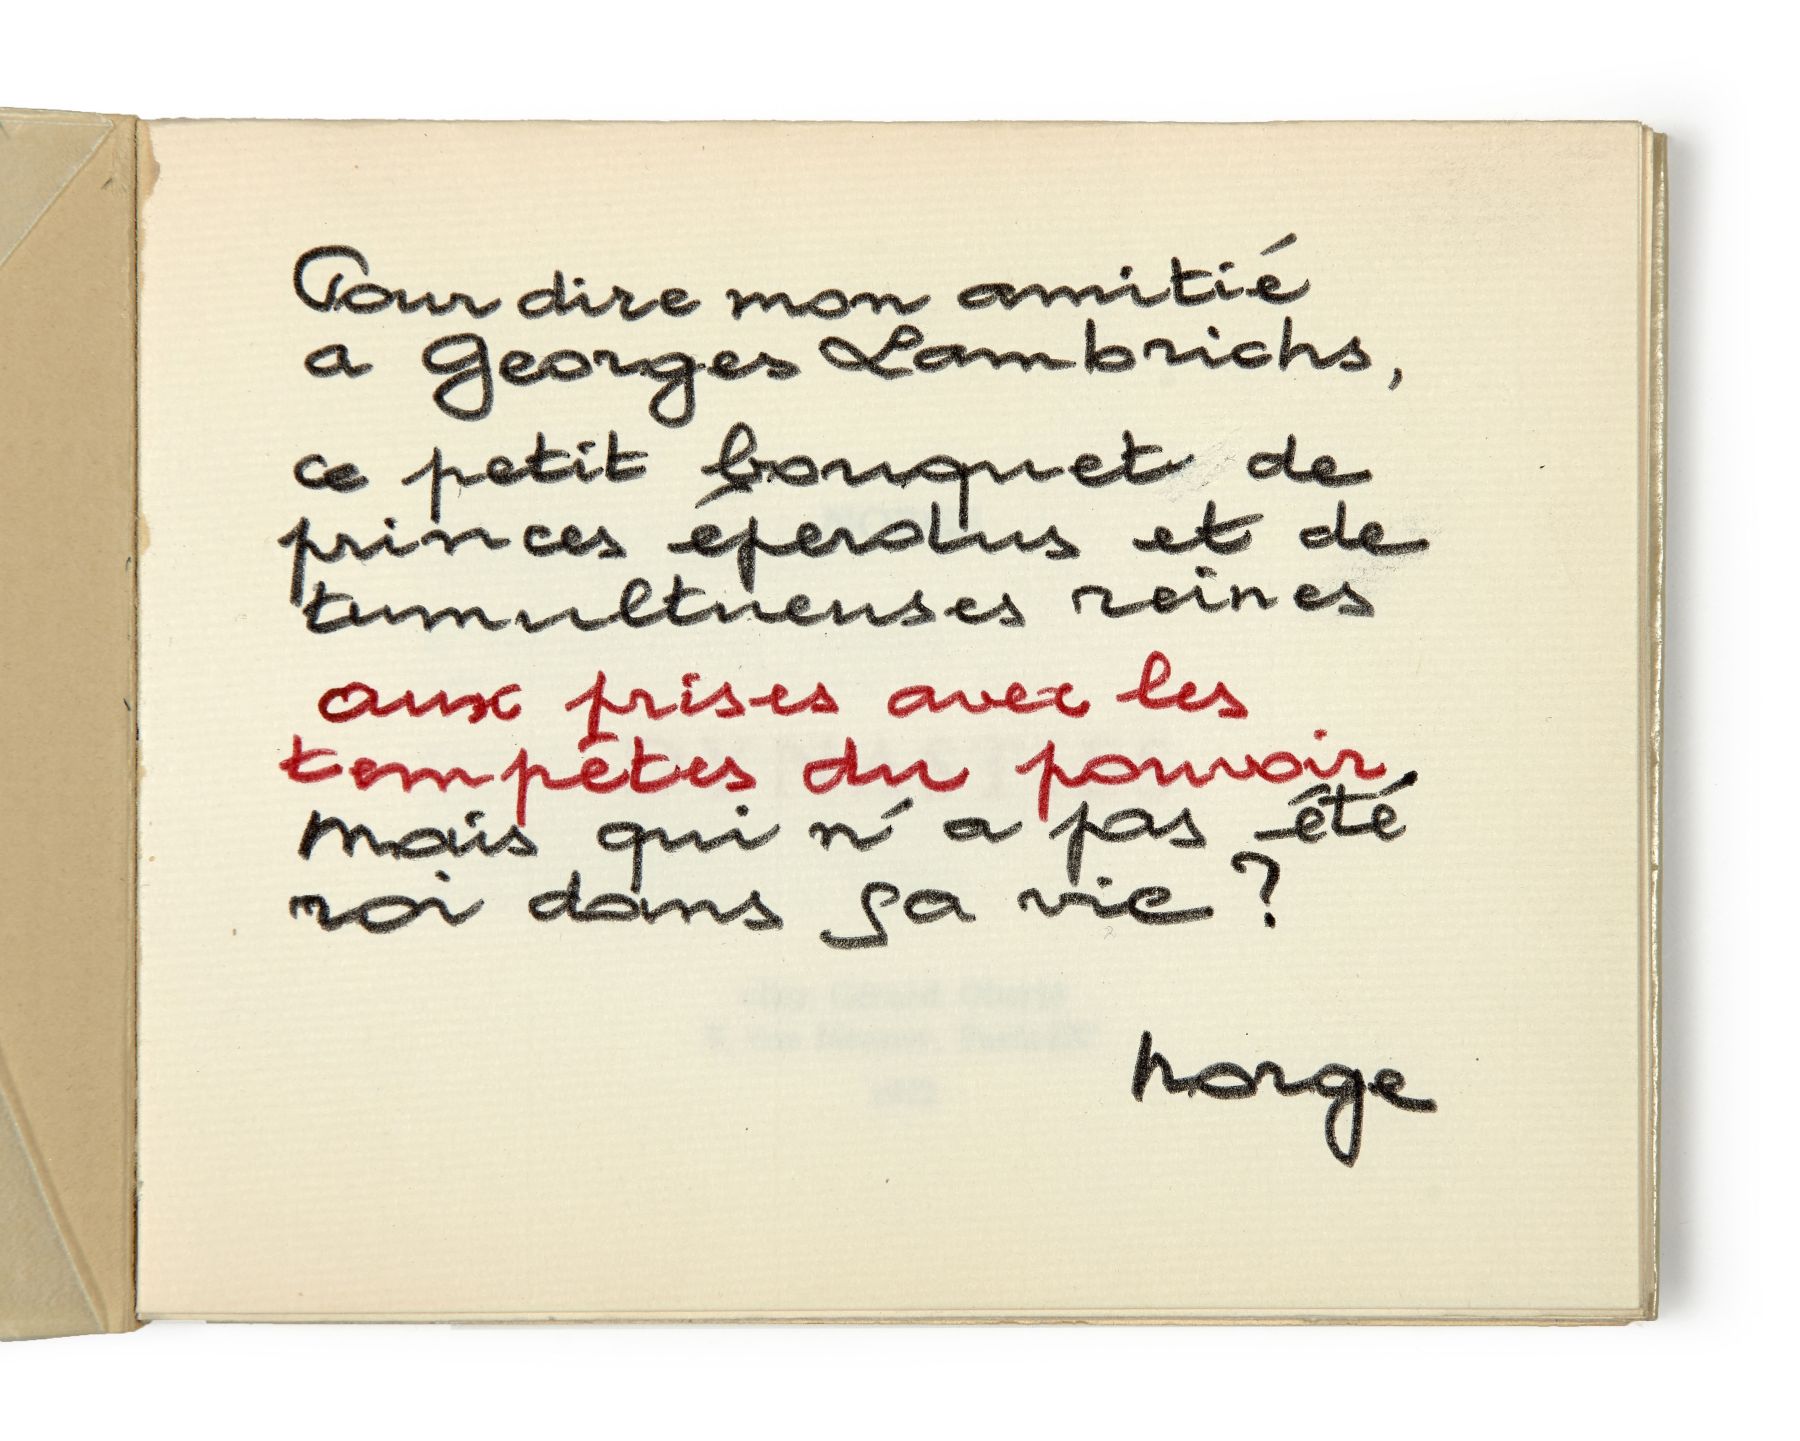 Pour dire mon amitié
a Georges Lambrichs,
ce petit bouquet de
princes éperdus et de
tumultueuses reines
aux prises avec les
tempêtes du pouvoir.
Mais qui n'a pas été
roi dans sa vie ?
norge